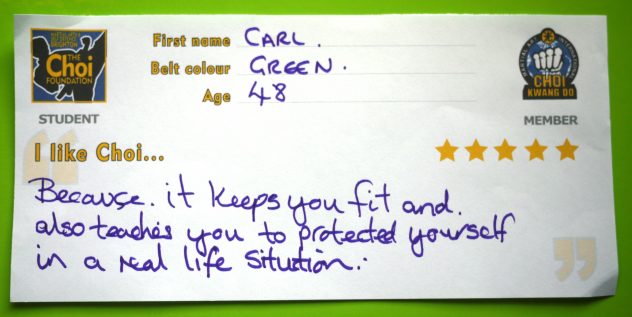 THE
Choi
FOUNDATION
STUDENT
First name CARL.
Belt colour GREEN.
Age 48
CHOI
KWANG DO
MEMBER
I like Choi...
Because. it keeps you fit and.
also teaches you to protected yourself
in a real life situation.